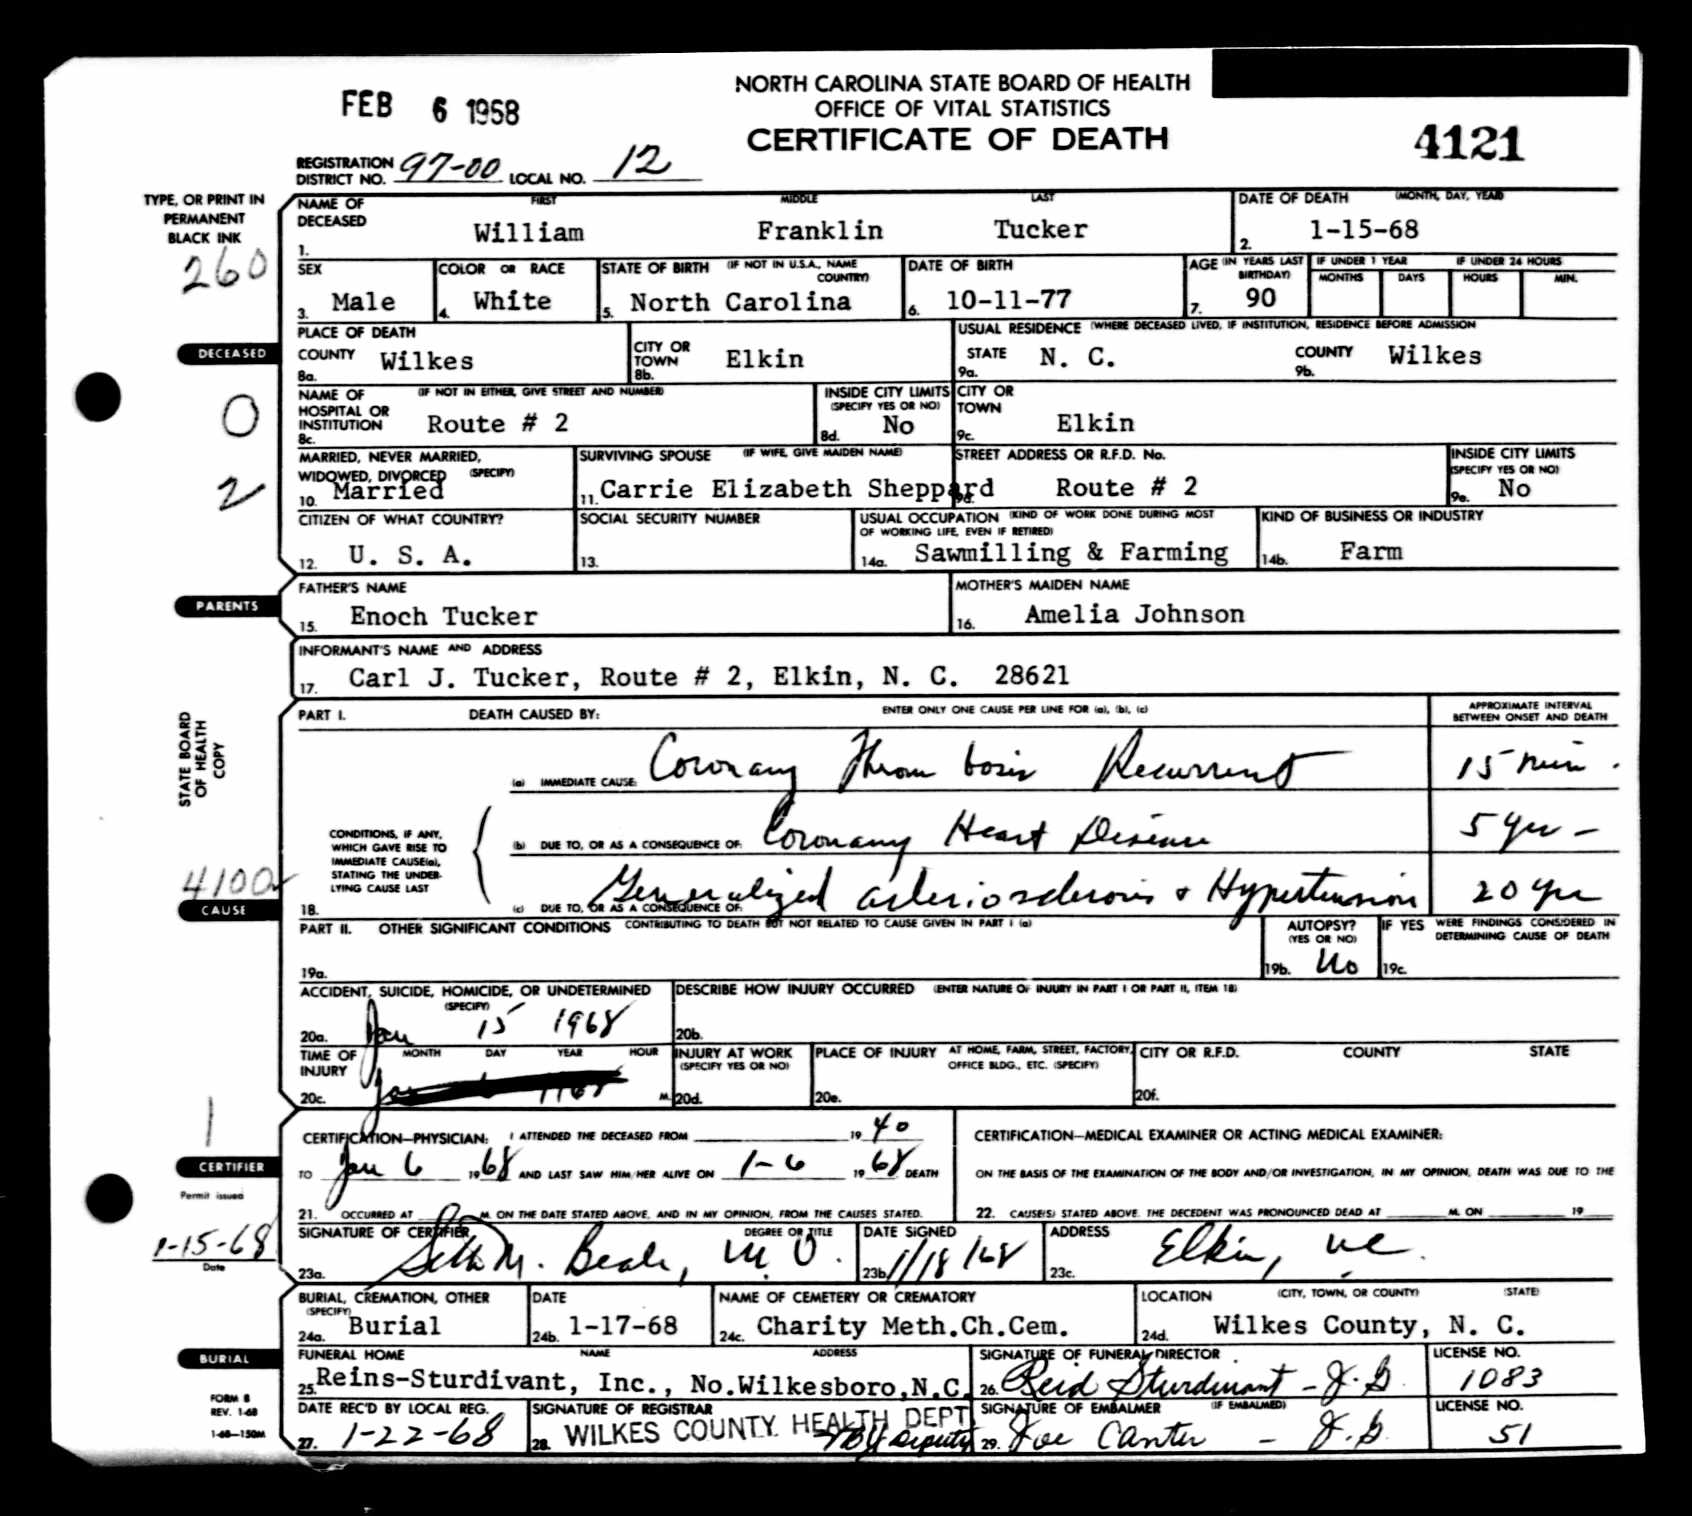 NORTH CAROLINA STATE BOARD OF HEALTH
OFFICE OF VITAL STATISTICS
CERTIFICATE OF DEATH
FEB 6 1968
4121
REGISTRATION DISTRICT NO. 97-00 LOCAL NO. 12
TYPE, OR PRINT IN
PERMANENT
BLACK INK
260
NAME OF DECEASED FIRST MIDDLE LAST
1. William Franklin Tucker
DATE OF DEATH (MONTH, DAY, YEAR)
2. 1-15-68
SEX
3. Male
COLOR OR RACE
4. White
STATE OF BIRTH (IF NOT IN U.S.A., NAME COUNTRY)
5. North Carolina
DATE OF BIRTH
6. 10-11-77
AGE (IN YEARS LAST BIRTHDAY)
7. 90
IF UNDER 1 YEAR
MONTHS DAYS
IF UNDER 24 HOURS
HOURS MIN.
DECEASED
PLACE OF DEATH
COUNTY Wilkes
8a.
CITY OR TOWN Elkin
8b.
USUAL RESIDENCE (WHERE DECEASED LIVED, IF INSTITUTION, RESIDENCE BEFORE ADMISSION
STATE N. C.
9a.
COUNTY Wilkes
9b.
0
NAME OF HOSPITAL OR INSTITUTION (IF NOT IN EITHER, GIVE STREET AND NUMBER)
8c. Route # 2
INSIDE CITY LIMITS (SPECIFY YES OR NO)
8d. No
CITY OR TOWN
9c. Elkin
2
MARRIED, NEVER MARRIED, WIDOWED, DIVORCED (SPECIFY)
10. Married
SURVIVING SPOUSE (IF WIFE, GIVE MAIDEN NAME)
11. Carrie Elizabeth Sheppard
STREET ADDRESS OR R.F.D. No.
9d. Route # 2
INSIDE CITY LIMITS (SPECIFY YES OR NO)
9e. No
CITIZEN OF WHAT COUNTRY?
12. U. S. A.
SOCIAL SECURITY NUMBER
13.
USUAL OCCUPATION (KIND OF WORK DONE DURING MOST OF WORKING LIFE, EVEN IF RETIRED)
14a. Sawmilling & Farming
KIND OF BUSINESS OR INDUSTRY
14b. Farm
PARENTS
FATHER'S NAME
15. Enoch Tucker
MOTHER'S MAIDEN NAME
16. Amelia Johnson
INFORMANT'S NAME AND ADDRESS
17. Carl J. Tucker, Route # 2, Elkin, N. C. 28621
STATE BOARD
OF HEALTH
COPY
PART I. DEATH CAUSED BY: ENTER ONLY ONE CAUSE PER LINE FOR (a), (b), (c)
APPROXIMATE INTERVAL BETWEEN ONSET AND DEATH
(a) IMMEDIATE CAUSE: Coronary Thrombosis Recurrent 15 min.
CONDITIONS, IF ANY, WHICH GAVE RISE TO IMMEDIATE CAUSE(a), STATING THE UNDERLYING CAUSE LAST
(b) DUE TO, OR AS A CONSEQUENCE OF: Coronary Heart Disease 5 yrs -
4100
CAUSE
18. (c) DUE TO, OR AS A CONSEQUENCE OF: Generalized arteriosclerosis & Hypertension 20 yrs
PART II. OTHER SIGNIFICANT CONDITIONS CONTRIBUTING TO DEATH BUT NOT RELATED TO CAUSE GIVEN IN PART I (a)
19a.
AUTOPSY? (YES OR NO)
19b. No
IF YES WERE FINDINGS CONSIDERED IN DETERMINING CAUSE OF DEATH
19c.
ACCIDENT, SUICIDE, HOMICIDE, OR UNDETERMINED (SPECIFY)
20a. Jan 15 1968
DESCRIBE HOW INJURY OCCURRED (ENTER NATURE OF INJURY IN PART I OR PART II, ITEM 18)
20b.
TIME OF INJURY MONTH DAY YEAR HOUR
20c. M.
INJURY AT WORK (SPECIFY YES OR NO)
20d.
PLACE OF INJURY AT HOME, FARM, STREET, FACTORY, OFFICE BLDG., ETC. (SPECIFY)
20e.
CITY OR R.F.D. COUNTY STATE
20f.
1
CERTIFIER
CERTIFICATION—PHYSICIAN: I ATTENDED THE DECEASED FROM 19 40
TO Jan 6 1968 AND LAST SAW HIM/HER ALIVE ON 1-6 1968 DEATH
21. OCCURRED AT M. ON THE DATE STATED ABOVE, AND IN MY OPINION, FROM THE CAUSES STATED.
CERTIFICATION—MEDICAL EXAMINER OR ACTING MEDICAL EXAMINER:
ON THE BASIS OF THE EXAMINATION OF THE BODY AND/OR INVESTIGATION, IN MY OPINION, DEATH WAS DUE TO THE
22. CAUSE(S) STATED ABOVE. THE DECEDENT WAS PRONOUNCED DEAD AT M. ON 19
Permit issued
1-15-68
Date
SIGNATURE OF CERTIFIER DEGREE OR TITLE
23a. Seth M. Beale, M.D.
DATE SIGNED
23b. 1/18/68
ADDRESS
23c. Elkin, NC.
BURIAL, CREMATION, OTHER (SPECIFY)
24a. Burial
DATE
24b. 1-17-68
NAME OF CEMETERY OR CREMATORY
24c. Charity Meth.Ch.Cem.
LOCATION (CITY, TOWN, OR COUNTY) (STATE)
24d. Wilkes County, N. C.
BURIAL
FUNERAL HOME NAME ADDRESS
25. Reins-Sturdivant, Inc., No.Wilkesboro,N.C.
SIGNATURE OF FUNERAL DIRECTOR
26. Reid Sturdivant - J.G.
LICENSE NO.
1083
FORM 8
REV. 1-68
1-68—150M
DATE REC'D BY LOCAL REG.
27. 1-22-68
SIGNATURE OF REGISTRAR
28. WILKES COUNTY HEALTH DEPT
Deputy
SIGNATURE OF EMBALMER (IF EMBALMED)
29. Joe Canter - J.G.
LICENSE NO.
51